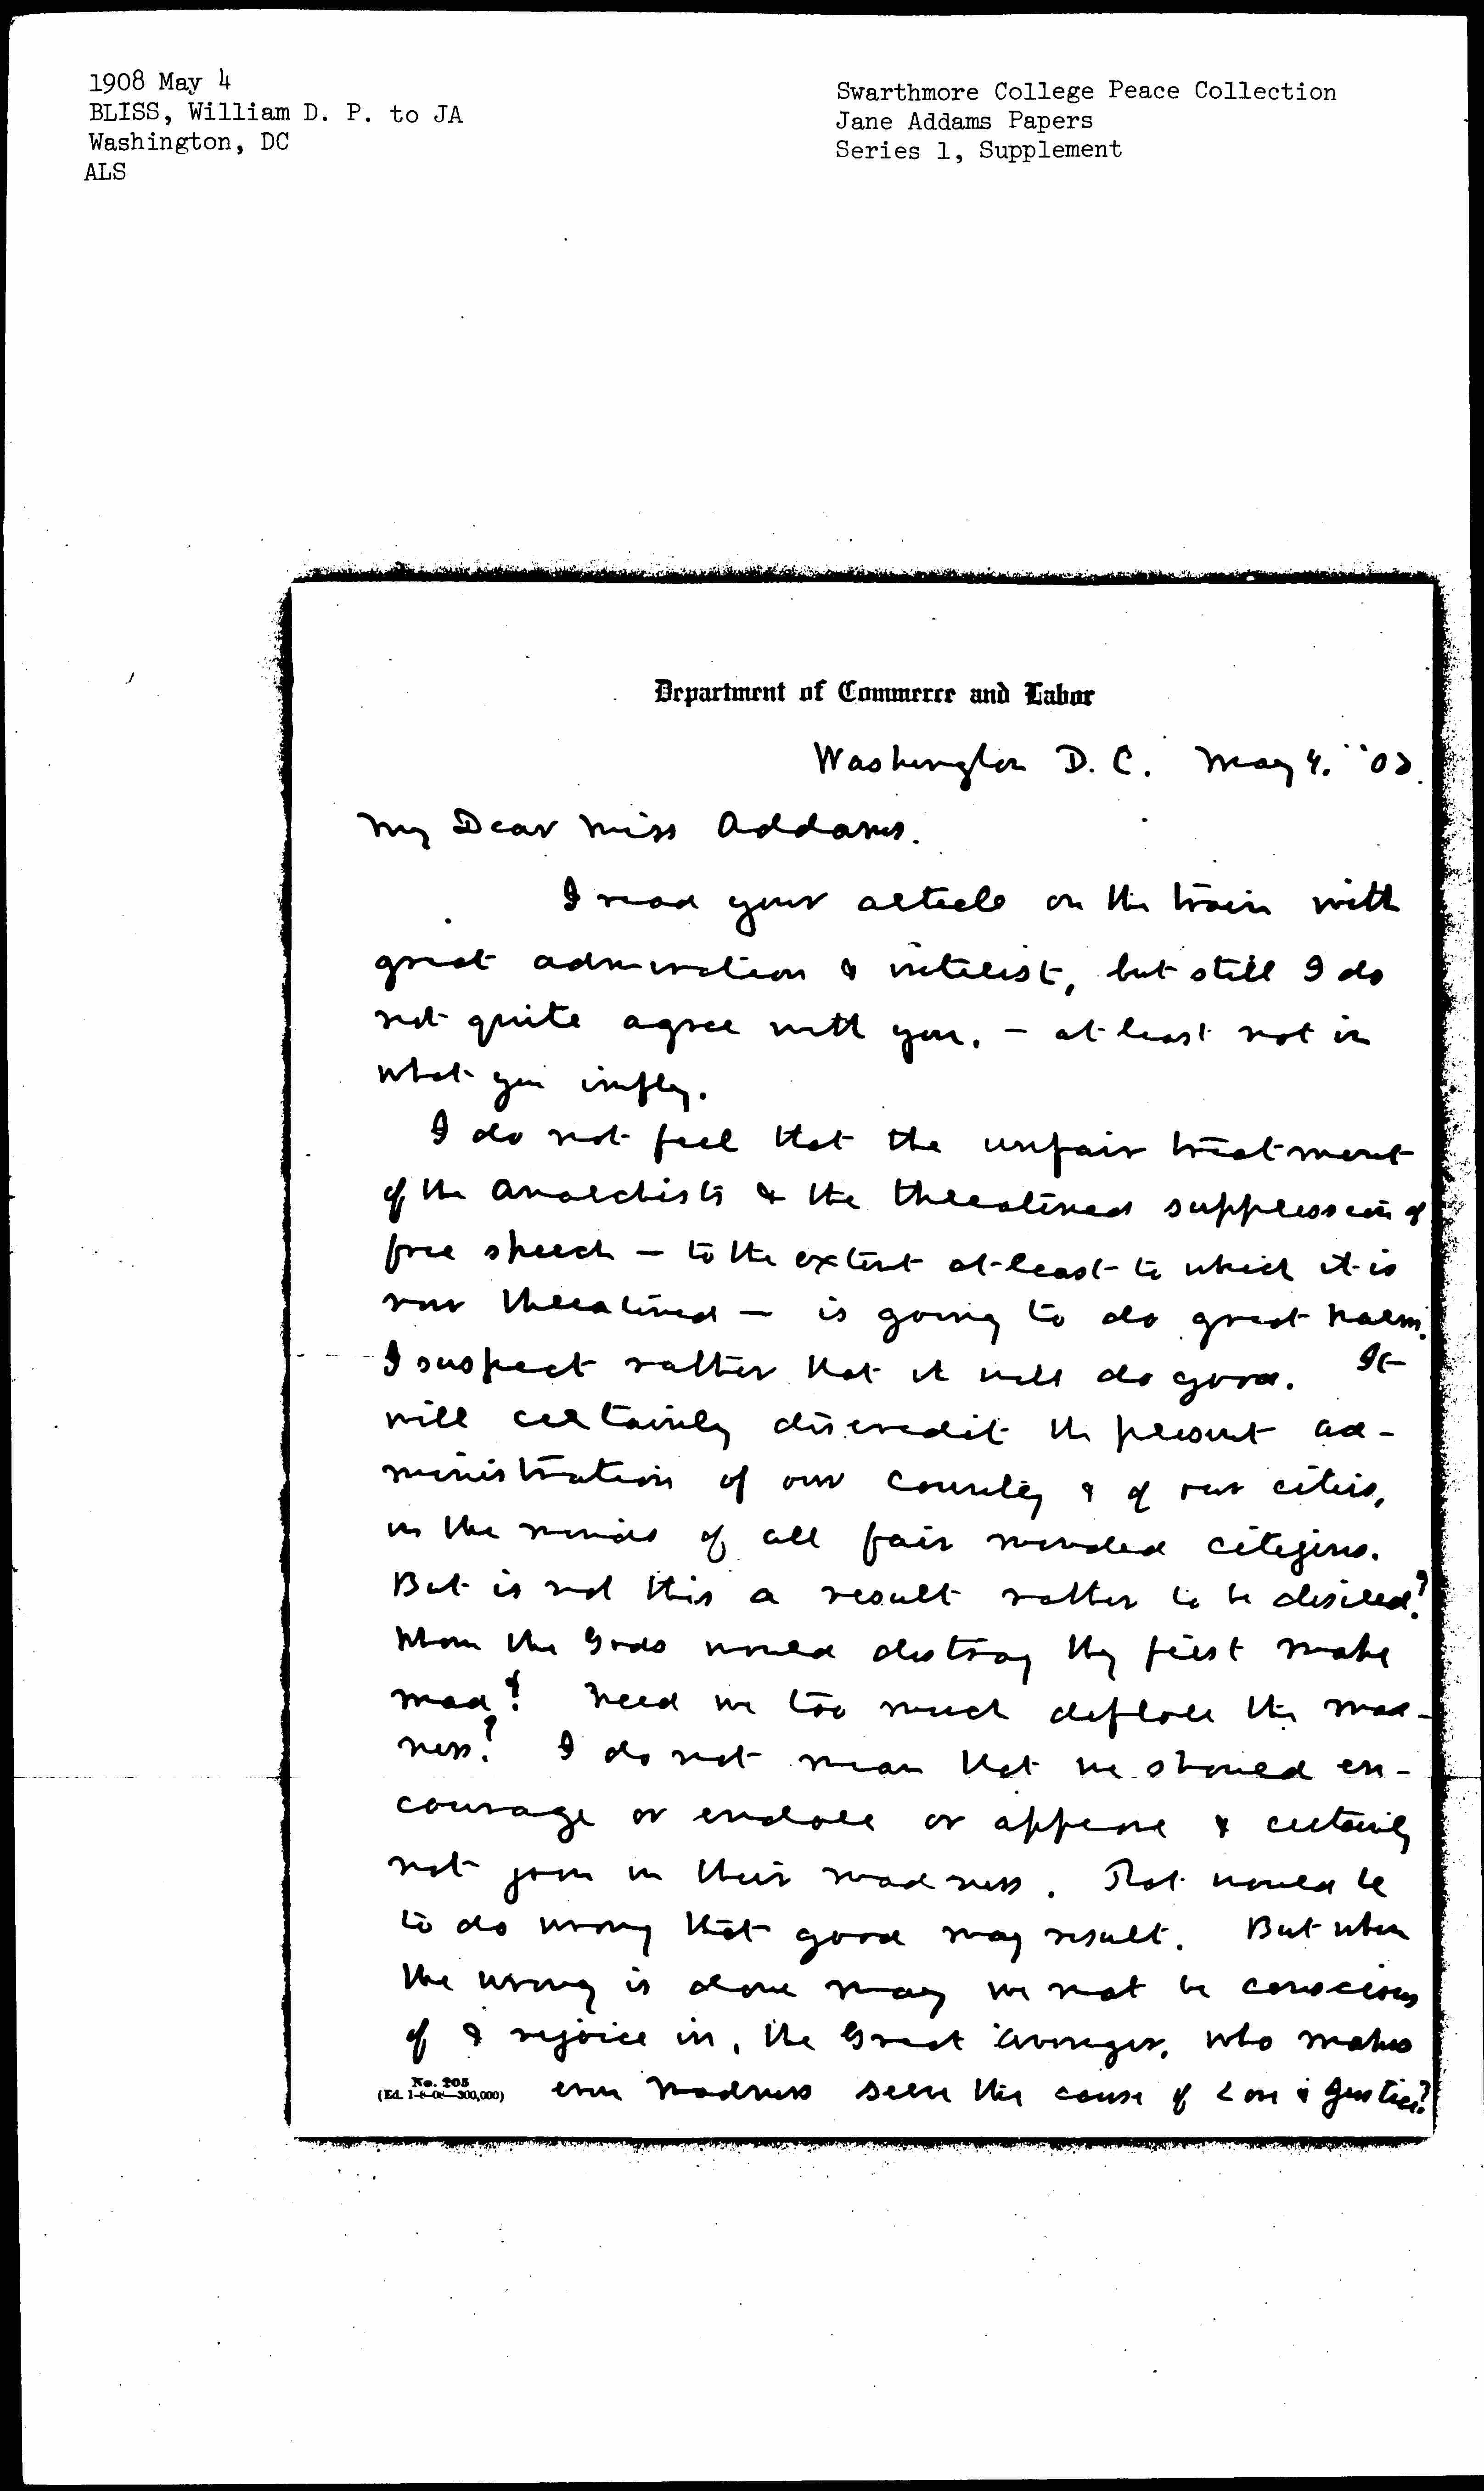 1908 May 4
BLISS, William D. P. to JA
Washington, DC
ALS
Swarthmore College Peace Collection
Jane Addams Papers
Series 1, Supplement
Department of Commerce and Labor
Washington D. C. May 4. "08.
My Dear Miss Addams.
I read your article on the train with
great admiration & interest, but still I do
not quite agree with you, – at least not in
what you imply.
I do not feel that the unfair treatment
of the Anarchists & the threatened suppression of
free speech – to the extent at least to which it is
now threatened – is going to do great harm.
I suspect rather that it will do good. It
will certainly discredit the present ad-
ministration of our country & of our cities,
in the minds of all fair minded citizens.
But is not this a result rather to be desired?
Whom the Gods would destroy they first make
mad? Need we too much deplore the mad-
ness? I do not mean that we should en-
courage or or approve & certainly
not join in their madness. That would be
to do wrong that good may result. But when
the wrong is done may we not be conscious
of & rejoice in, the Great Avenger, who makes
even madness serve the cause of Love & Justice?
No. 205
(Ed. 1-8-08—300,000)